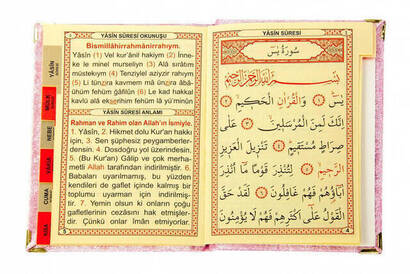 YÂSÎN SÛRESİ OKUNUŞU
Bismillâhirrahmânirrahıym.
Yâsîn (1) Vel kur'ânil hakiym (2) İnne-
ke le minel murseliyn (3) Alâ sırâtım
müstekıym (4) Tenziylel aziyzir rahıym
(5) Li tünzira kavmem mâ ünzira âbâ-
ühüm fehüm ğâfilûn (6) Le kad hakkal
kavlü alâ ekserihim fehüm lâ yü'minûn
YÂSÎN SÛRESİ ANLAMI
Rahman ve Rahim olan Allah'ın İsmiyle.
1. Yâsîn, 2. Hikmet dolu Kur'an hakkı
için, 3. Sen şüphesiz peygamberler-
densin. 4. Dosdoğru yol üzerindesin.
5. (Bu Kur'an) Gâlip ve çok merha-
metli Allah tarafından indirilmiştir. 6.
Babaları uyarılmamış, bu yüzden
kendileri de gaflet içinde kalmış bir
toplumu uyarman için indirilmiş-
tir. 7. Yemin olsun ki onların çoğu
gafletlerinin cezâsını hak etmişler-
dir. Çünkü onlar îman etmiyorlar.
5
YÂSÎN
MÜLK
NEBE
VAKIA
CUMA
YÂSÎN SÛRESİ
سُورَةُ يٰسٓ
بِسْمِ اللّٰهِ الرَّحْمٰنِ الرَّحِيمِ
يٰسٓ ﴿١﴾ وَالْقُرْاٰنِ الْحَكِيمِ ﴿٢﴾
اِنَّكَ لَمِنَ الْمُرْسَلِينَ ﴿٣﴾ عَلٰى
صِرَاطٍ مُسْتَقِيمٍ ﴿٤﴾ تَنْزِيلَ الْعَزِيزِ
الرَّحِيمِ ﴿٥﴾ لِتُنْذِرَ قَوْمًا مَٓا اُنْذِرَ
اٰبَٓاؤُهُمْ فَهُمْ غَافِلُونَ ﴿٦﴾ لَقَدْ حَقَّ
الْقَوْلُ عَلٰٓى اَكْثَرِهِمْ فَهُمْ لَا يُؤْمِنُونَ
4